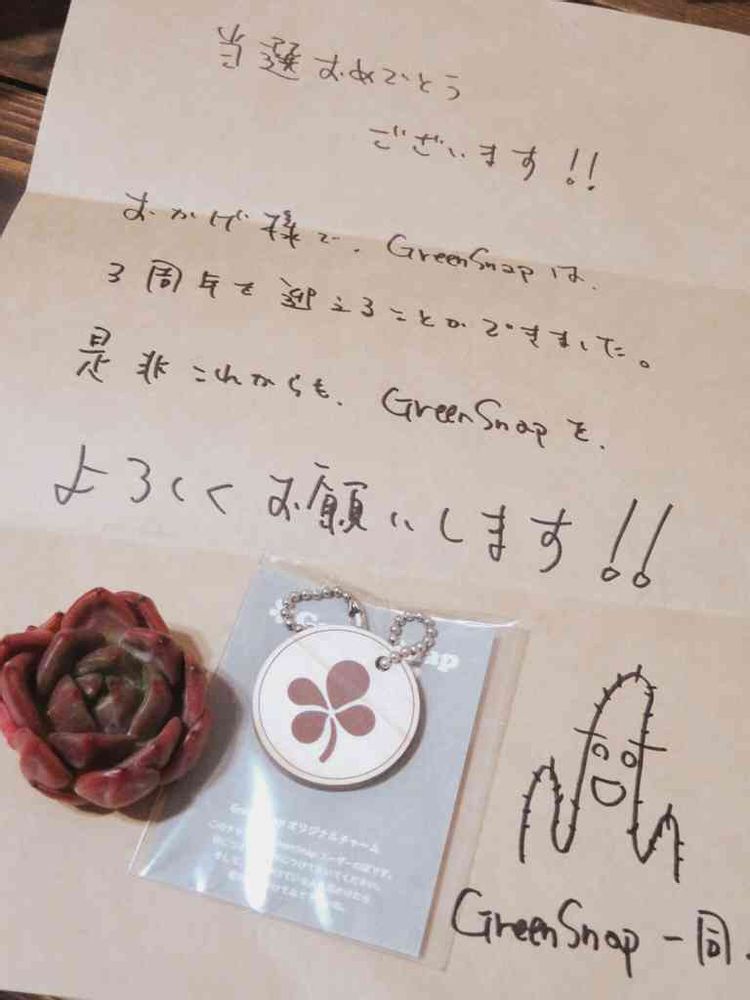 当選おめでとう
ございます!!
おかげ様で、GreenSnapは、
3周年を迎えることができました。
是非これからも、GreenSnapを、
よろしくお願いします!!
オリジナルチャーム
GreenSnap一同.